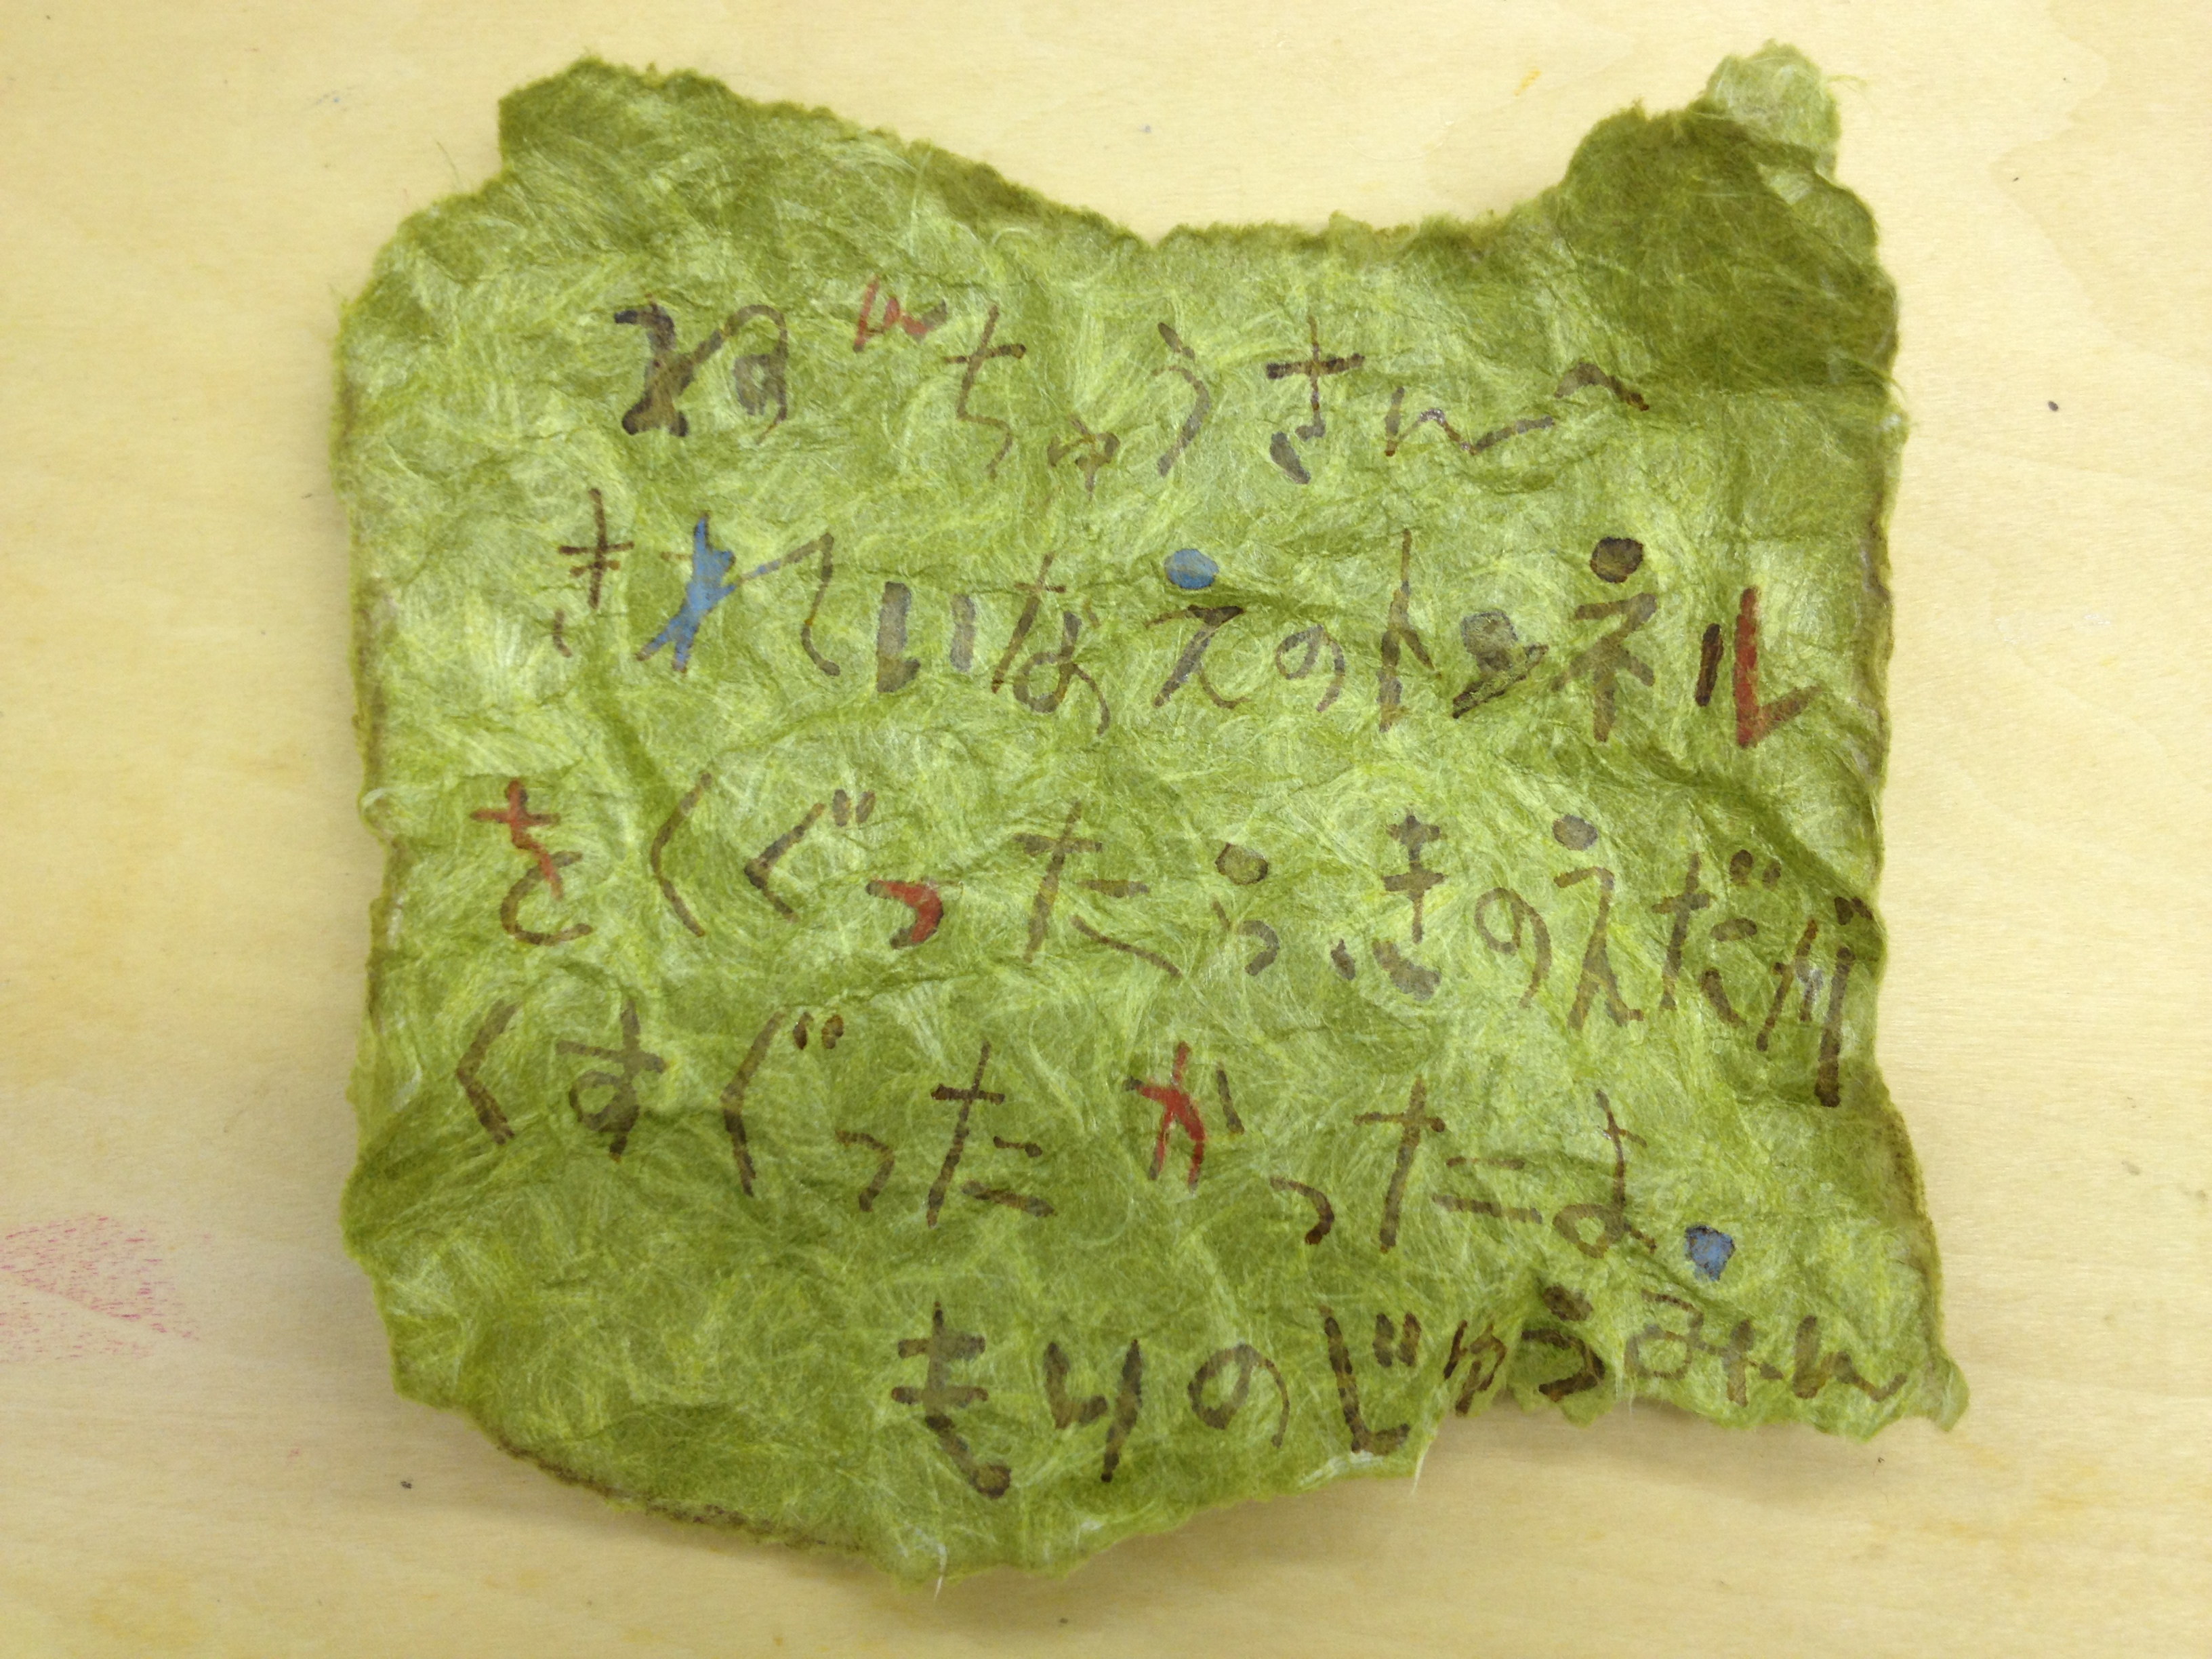 ねんちゅうさんへ
きれいなえのトンネル
をくぐったらきのえだが
くすぐったかったよ。
もりのじゅうみん